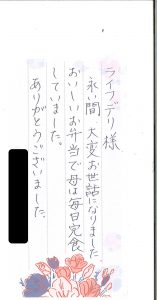 ライフデリ様
永い間 大変お世話になりました。
おいしいお弁当で母は毎日完食
していました。
ありがとうございました。